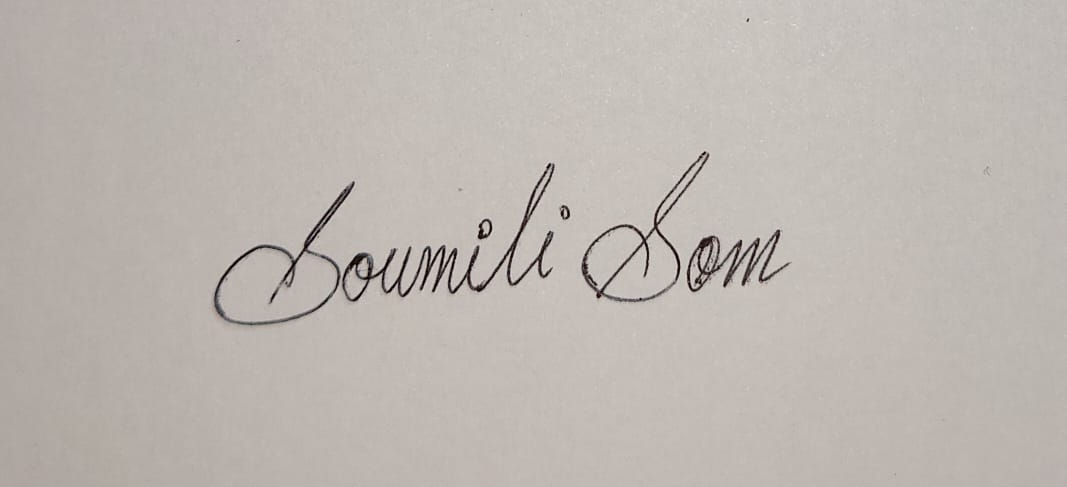 Soumili Som